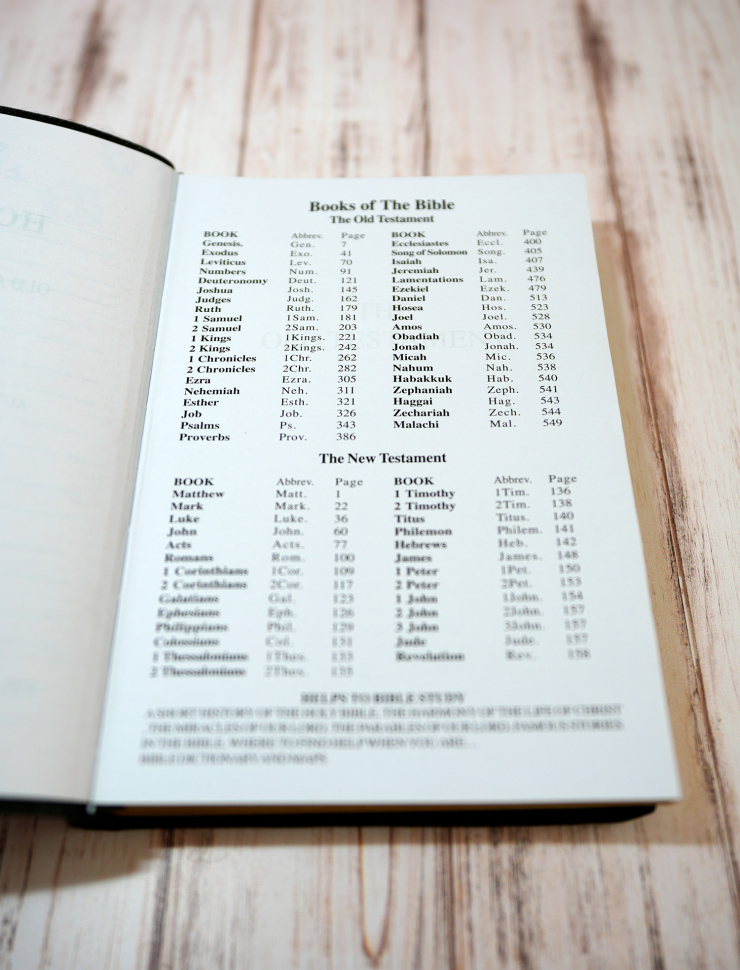 Books of The Bible
The Old Testament
BOOK Abbrev. Page
Genesis. Gen. 7
Exodus Exo. 41
Leviticus Lev. 70
Numbers Num. 91
Deuteronomy Deut. 121
Joshua Josh. 145
Judges Judg. 162
Ruth Ruth. 179
1 Samuel 1Sam. 181
2 Samuel 2Sam. 203
1 Kings 1Kings. 221
2 Kings 2Kings. 242
1 Chronicles 1Chr. 262
2 Chronicles 2Chr. 282
Ezra Ezra. 305
Nehemiah Neh. 311
Esther Esth. 321
Job Job. 326
Psalms Ps. 343
Proverbs Prov. 386
BOOK Abbrev. Page
Ecclesiastes Eccl. 400
Song of Solomon Song. 405
Isaiah Isa. 407
Jeremiah Jer. 439
Lamentations Lam. 476
Ezekiel Ezek. 479
Daniel Dan. 513
Hosea Hos. 523
Joel Joel. 528
Amos Amos. 530
Obadiah Obad. 534
Jonah Jonah. 534
Micah Mic. 536
Nahum Nah. 538
Habakkuk Hab. 540
Zephaniah Zeph. 541
Haggai Hag. 543
Zechariah Zech. 544
Malachi Mal. 549
The New Testament
BOOK Abbrev. Page
Matthew Matt. 1
Mark Mark. 22
Luke Luke. 36
John John. 60
Acts Acts. 77
Romans Rom. 100
1 Corinthians 1Cor. 109
2 Corinthians 2Cor. 117
Galatians Gal. 123
Ephesians Eph. 126
Philippians Phil. 129
Colossians Col. 131
1 Thessalonians 1Thes.
2 Thessalonians 2Thes.
BOOK Abbrev. Page
1 Timothy 1Tim. 136
2 Timothy 2Tim. 138
Titus Titus. 140
Philemon Philem. 141
Hebrews Heb. 142
James James. 148
1 Peter 1Pet. 150
2 Peter 2Pet. 153
1 John 1John. 154
2 John 2John. 157
3 John 3John. 157
Jude Jude. 157
Revolution Rev. 158
HELPS TO BIBLE STUDY
A SHORT HISTORY OF THE HOLY BIBLE, THE HARMONY OF THE LIFE OF CHRIST
, THE MIRACLES OF OUR LORD, THE PARABLES OF OUR LORD, FAMOUS STORIES
IN THE BIBLE, WHERE TO FIND HELP WHEN YOU ARE...
BIBLE DICTIONARY AND MAPS